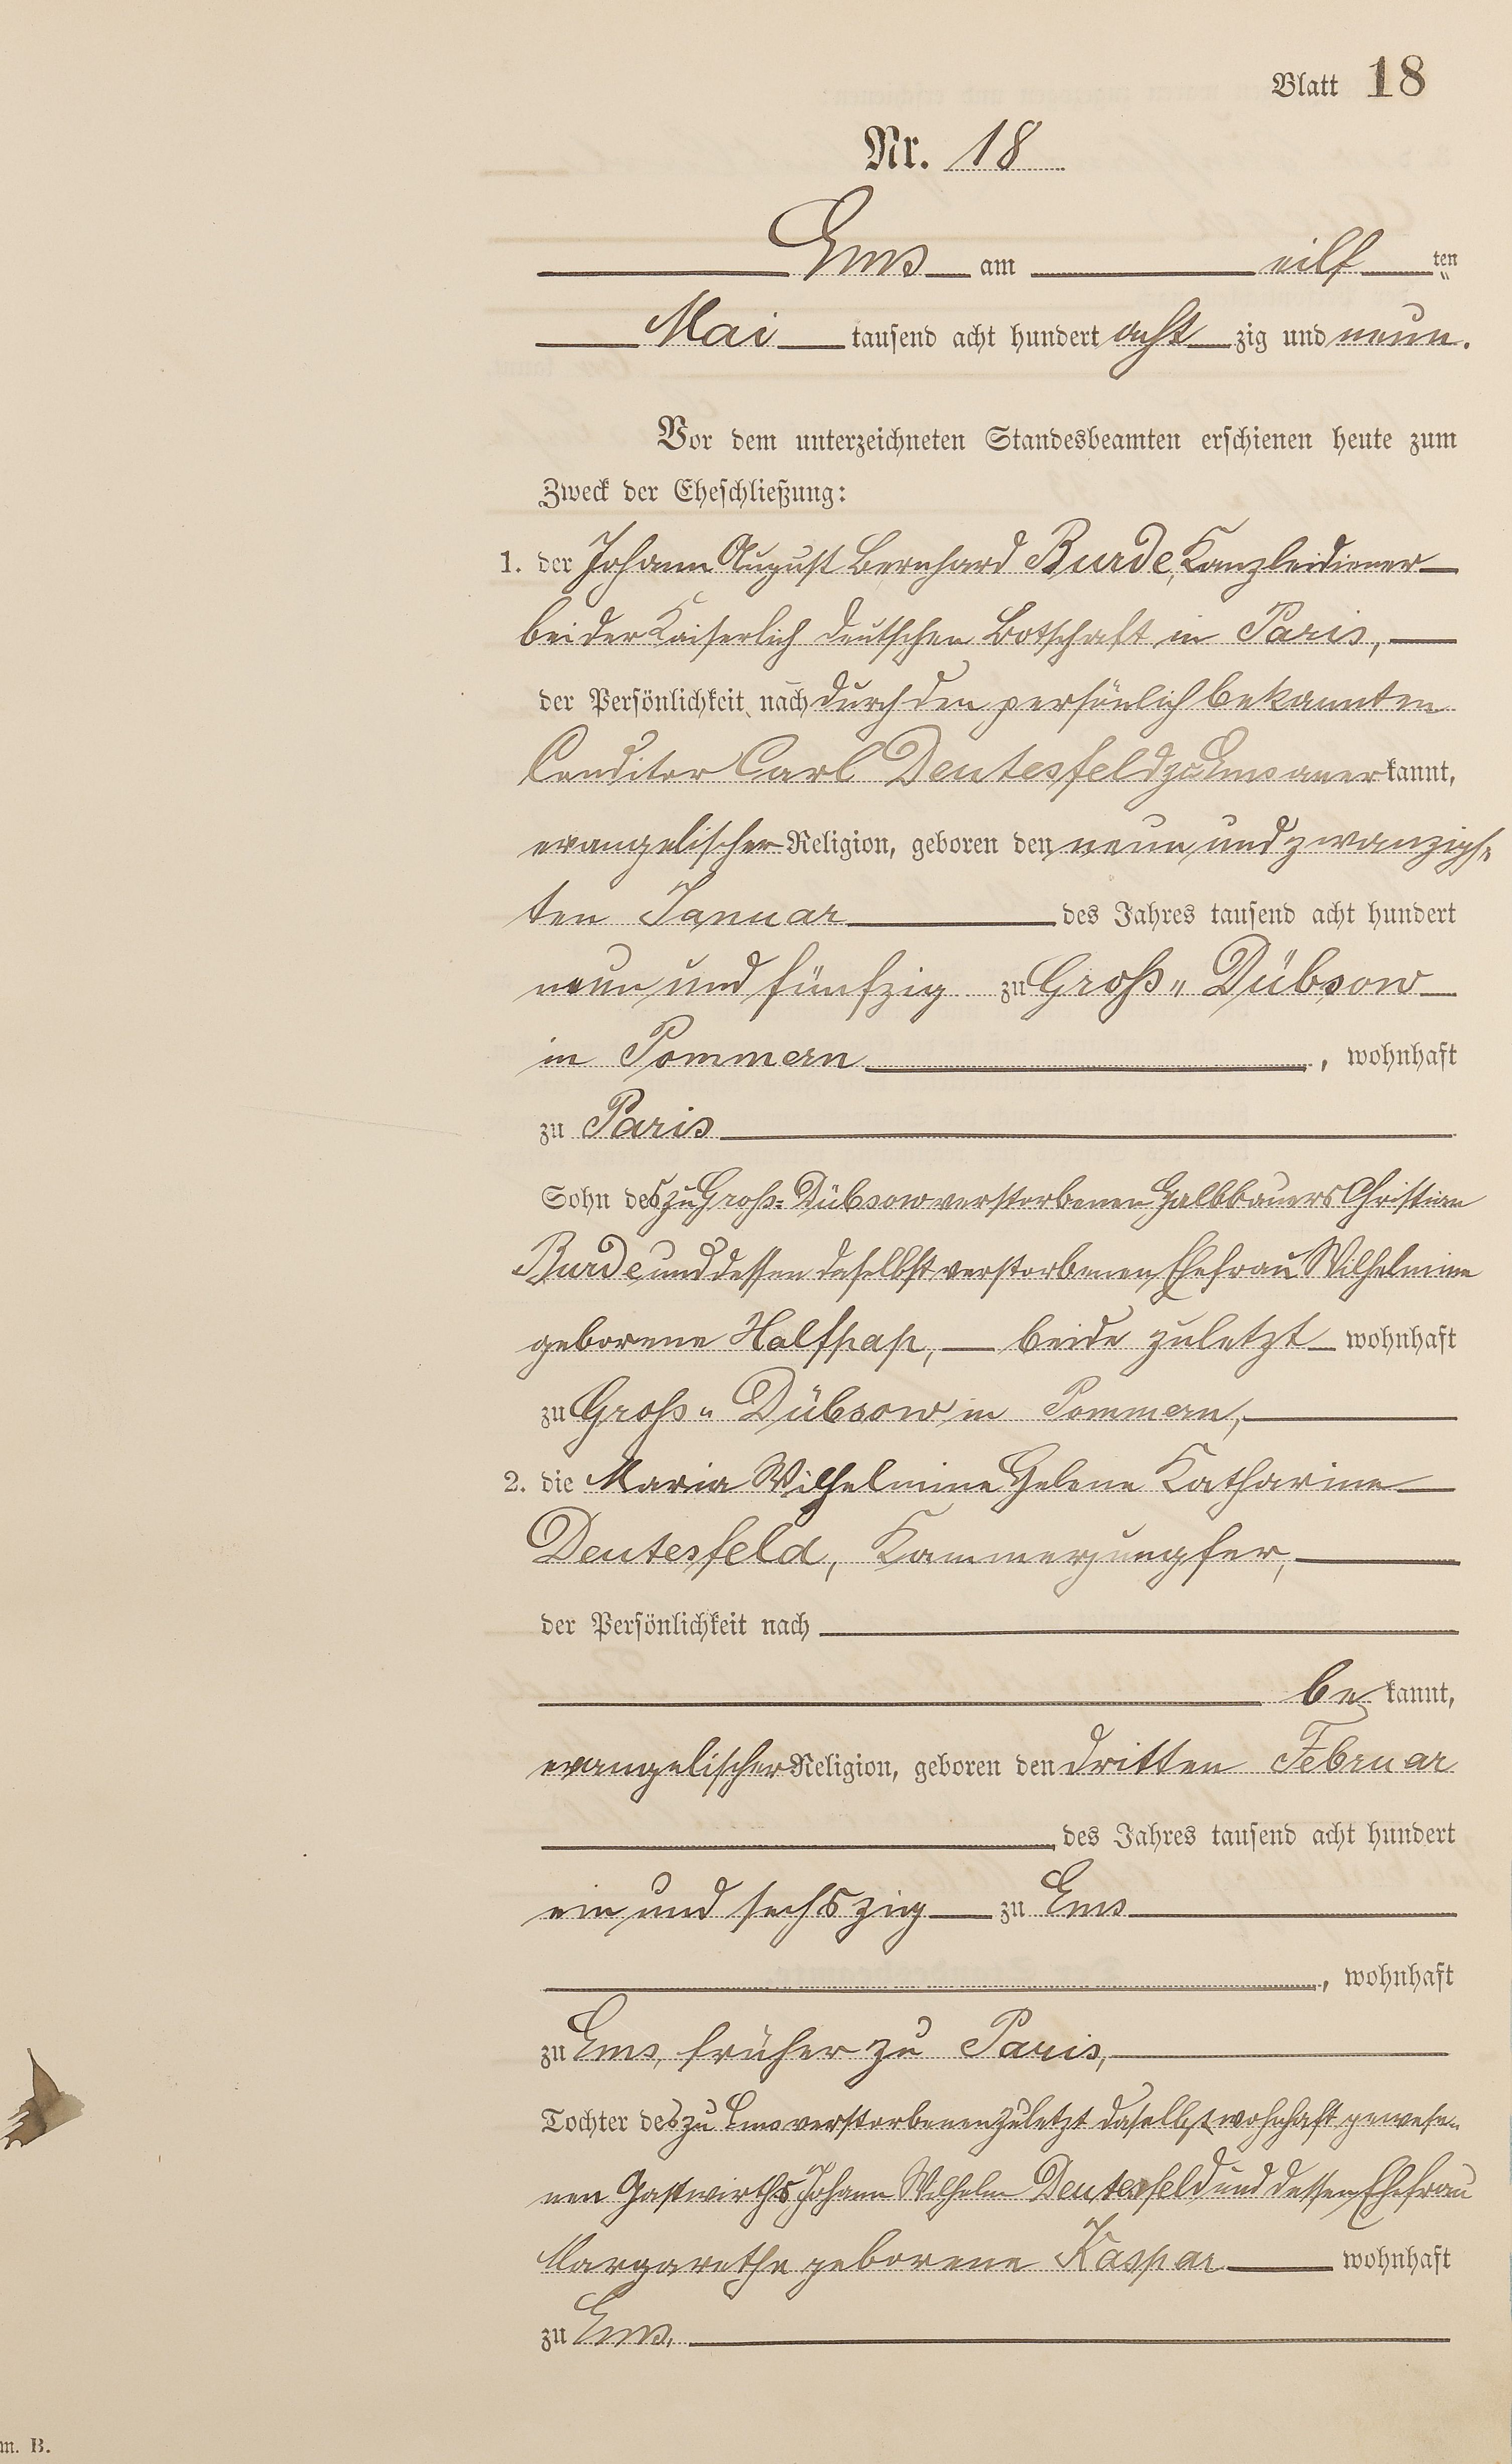 Blatt 18
Nr. 18
Ems am eilf ten
Mai tausend acht hundert acht zig und neun.
Vor dem unterzeichneten Standesbeamten erschienen heute zum
Zweck der Eheschließung:
1. der Johann August Bernhard Burde, Kanzleidiener
bei der Kaiserlich deutschen Botschaft in Paris,
der Persönlichkeit nach durch den persönlich bekannten
Conditor Carl Deutesfeld zu Ems aner kannt,
evangelischer Religion, geboren den neun und zwanzigs-
ten Januar des Jahres tausend acht hundert
neun und fünfzig zu Groß-Dübsow
in Pommern, wohnhaft
zu Paris
Sohn des zu Groß-Dübsow verstorbenen Halbbauers Christian
Burde und dessen daselbst verstorbenen Ehefrau Wilhelmine
geborene Halfpap, beide zuletzt wohnhaft
zu Groß-Dübsow in Pommern,
2. die Maria Wilhelmine Helene Katharine
Deutesfeld, Kammerjungfer,
der Persönlichkeit nach
be kannt,
evangelischer Religion, geboren den dritten Februar
des Jahres tausend acht hundert
ein und sechszig zu Ems
, wohnhaft
zu Ems, früher zu Paris,
Tochter des zu Ems verstorbenen zuletzt daselbst wohnhaft gewese-
nen Gastwirths Johann Wilhelm Deutesfeld und dessen Ehefrau
Margarethe geborene Kaspar wohnhaft
zu Ems.
m. B.